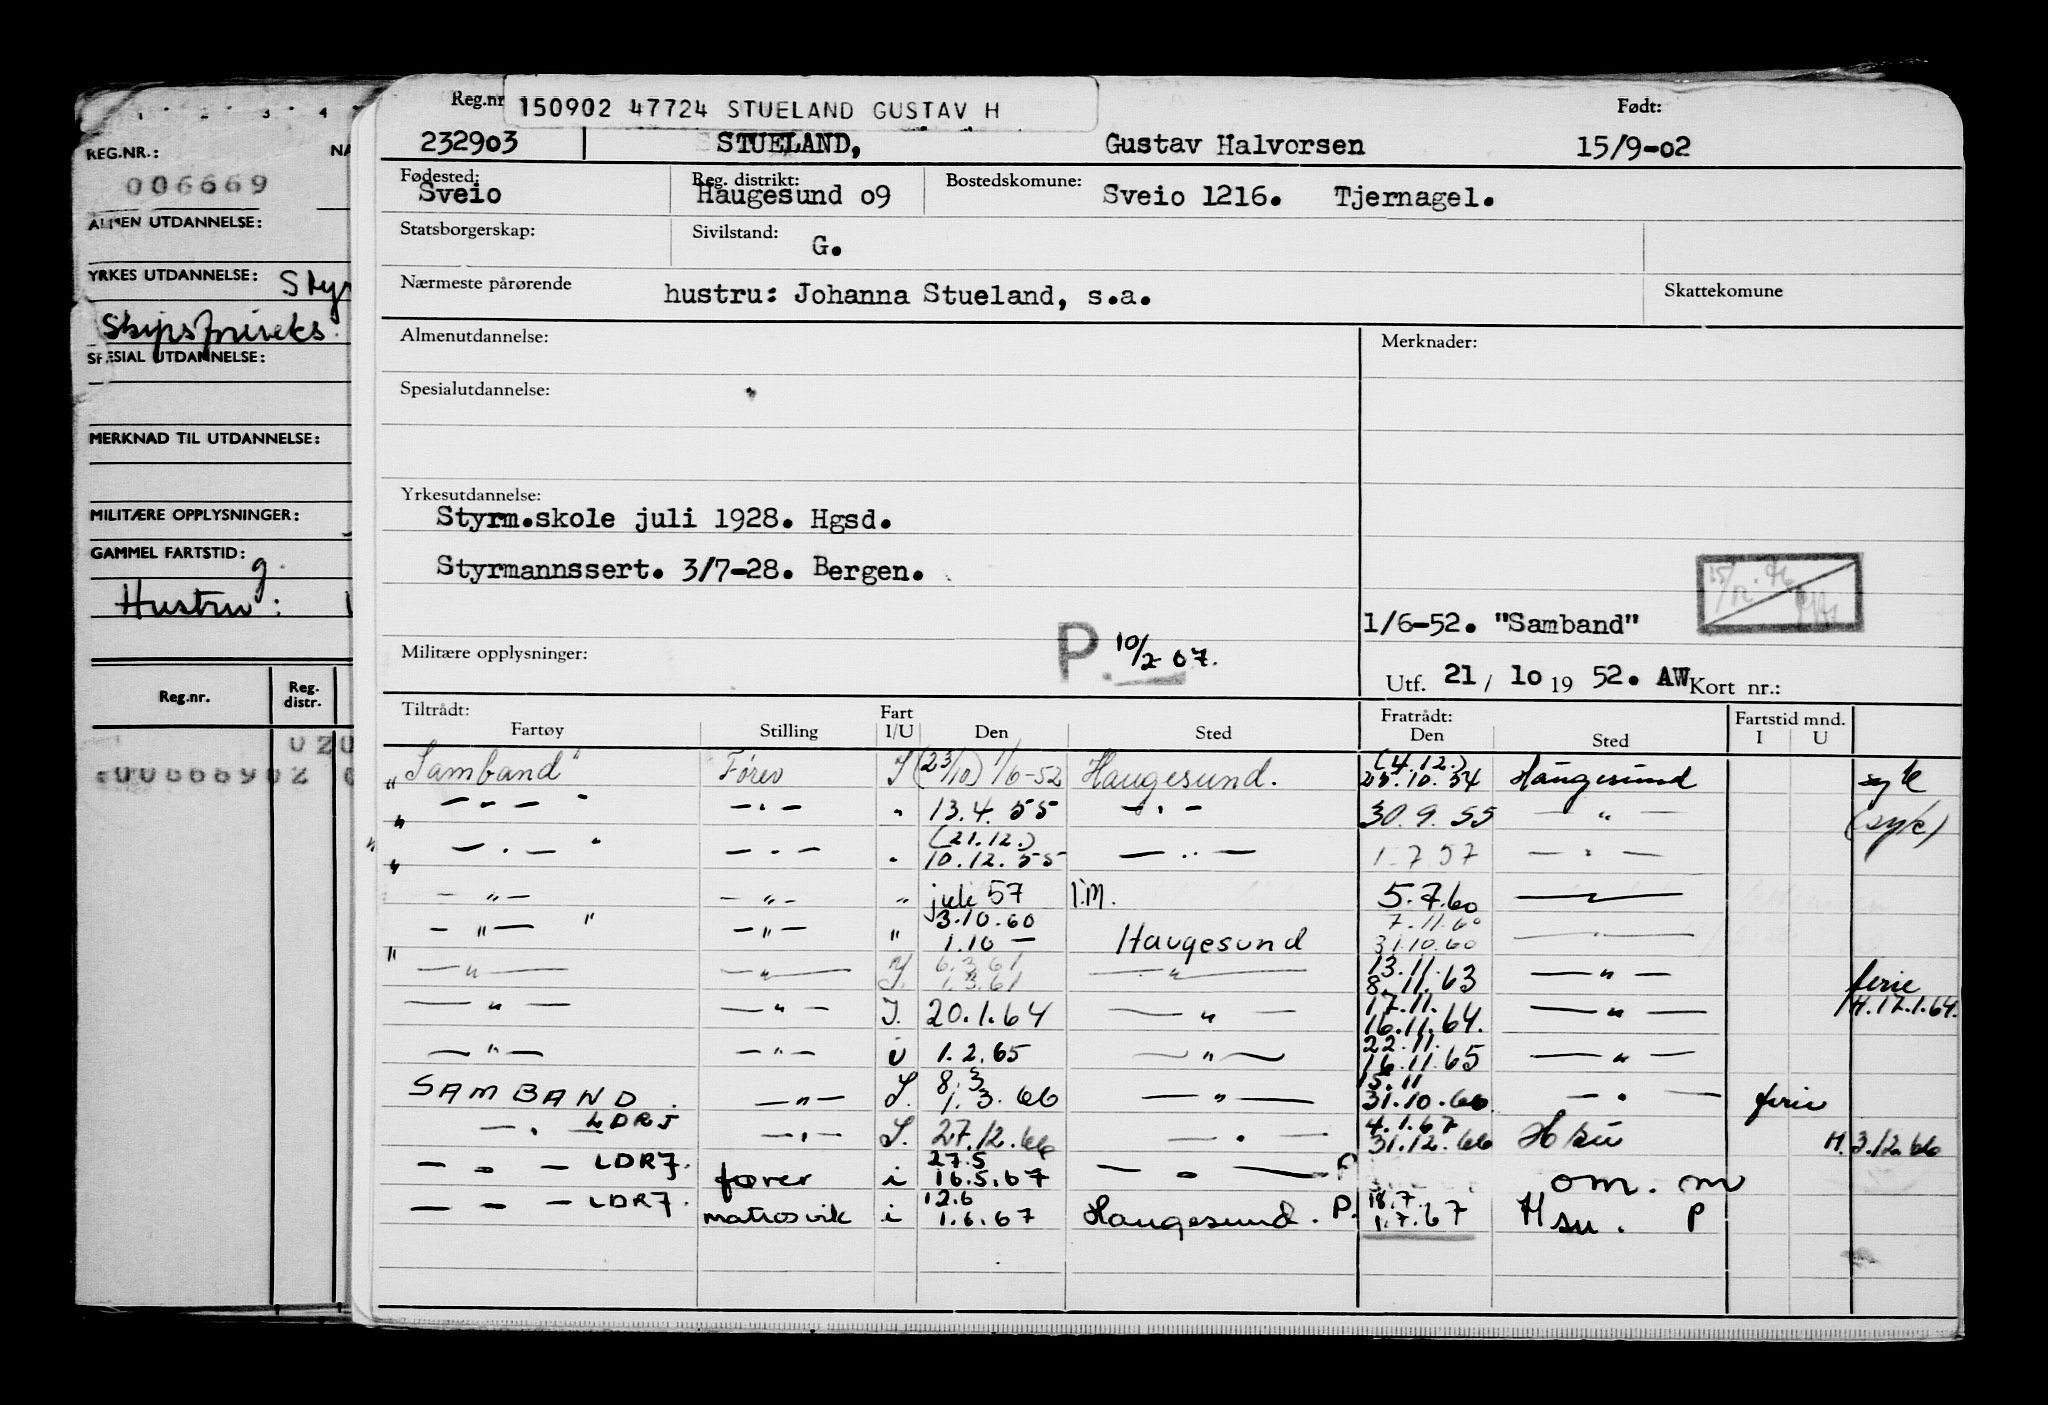 1 2 3 4
REG.NR.: NA
006669
ALMEN UTDANNELSE:
YRKES UTDANNELSE: Sty
SPESIAL UTDANNELSE:
MERKNAD TIL UTDANNELSE:
MILITÆRE OPPLYSNINGER:
GAMMEL FARTSTID: g.
Hustru:
Reg.nr. Reg. distr.
020
Reg.nr 150902 47724 STUELAND GUSTAV H Født:
232903 STUELAND, Gustav Halvorsen 15/9-02
Fødested: Reg. distrikt: Bostedskomune:
Sveio Haugesund 09 Sveio 1216. Tjernagel.
Statsborgerskap: Sivilstand: G.
Nærmeste pårørende hustru: Johanna Stueland, s.a. Skattekomune
Almenutdannelse: Merknader:
Spesialutdannelse:
Yrkesutdannelse:
Styrm.skole juli 1928. Hgsd.
Styrmannssert. 3/7-28. Bergen.
1/6-52. "Samband"
Militære opplysninger: P. 10/2 67.
Utf. 21 / 10 19 52. AW Kort nr.:
Tiltrådt: Fart Fratrådt: Fartstid mnd.
Fartøy Stilling I/U Den Sted Den Sted I U
"Samband" Fører I (23/10) 1/6-52 Haugesund. (4.12.) 25.10.54 Haugesund syk
" — " — " — " — " 13.4.55 — " — 30.9.55 — " — (syk)
" — " — " — " — " (21.12.) 10.12.55 — " — 1.7.57 — " —
— " — — " — " juli 57 I.M. 5.7.60 — " —
— " — " — " — " 3.10.60 1.10 — Haugesund 7.11.60 31.10.60
" — " — — " — I. 6.3.61 1.3.61 — " — 13.11. 8.11.63 — " — ferie
— " — — " — I. 20.1.64 — " — 17.11. 16.11.64. — " — M.17.1.64.
— " — — " — i 1.2.65 — " — 22.11. 16.11.65 — " —
SAMBAND. — " — I. 8.3 1.3.66 — " — 15.11 31.10.66 — " — ferie
— " LDRJ — " — I. 27.12.66 — " — 4.1.67 31.12.66 Hsu M. 3.12.66
— " — LDRJ. fører i 27.5 16.5.67 — " — P om. m
— " — LDRJ. matros vik i 12.6 1.6.67 Haugesund. P. 18.7. 1.7.67 Hsu. P